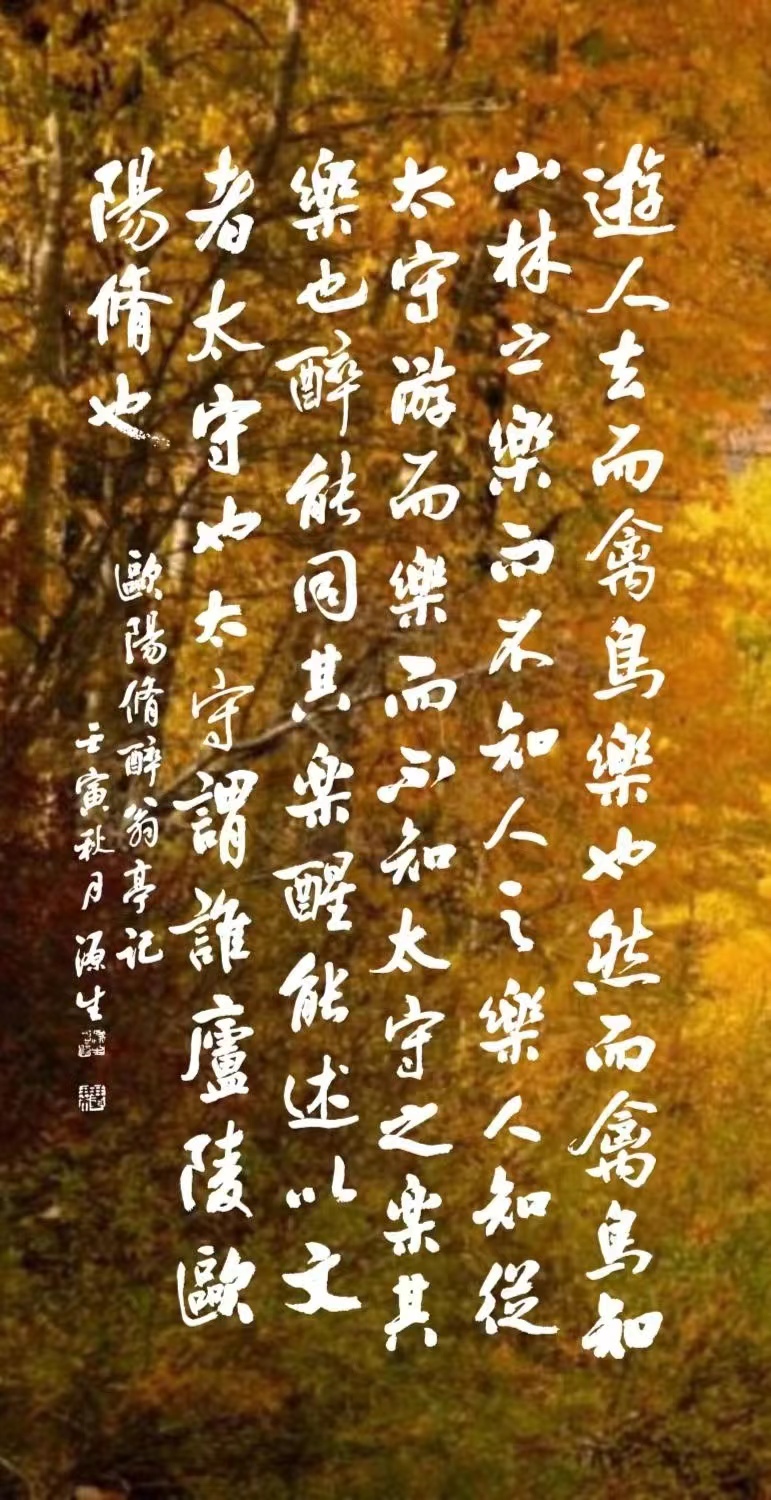 遊人去而禽鳥樂也然而禽鳥知
山林之樂而不知人之樂人知從
太守游而樂而不知太守之樂其
樂也醉能同其樂醒能述以文
者太守也太守謂誰廬陵歐
陽脩也
歐陽脩醉翁亭记
壬寅秋月源生